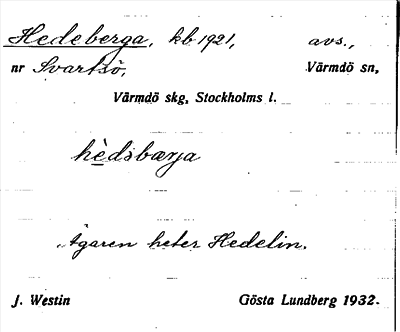 Hedeberga, kb 1921, avs.,
nr Svartsö, Värmdö sn,
Värmdö skg, Stockholms l.
hèdsbærja
Ägaren heter Hedelin.
J. Westin Gösta Lundberg 1932.